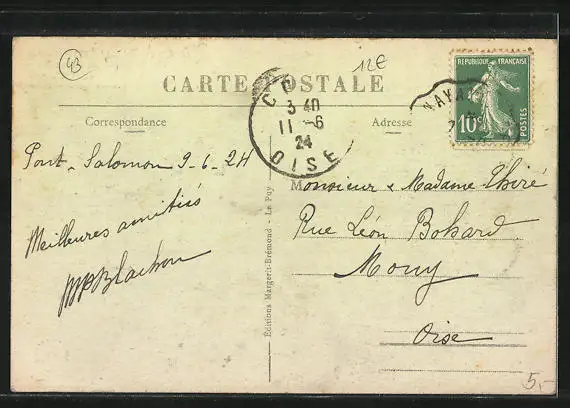 43
12€
CARTE POSTALE
Correspondance
Adresse
REPUBLIQUE FRANÇAISE
10c
POSTES
3 40
11 - 6
24
OISE
Pont-Salomon 9-6-24
Meilleures amitiés
Monsieur & Madame Thiré
Rue Léon Bohard
Mouy
Oise
Editions Margerit-Brémond - Le Puy
5,-